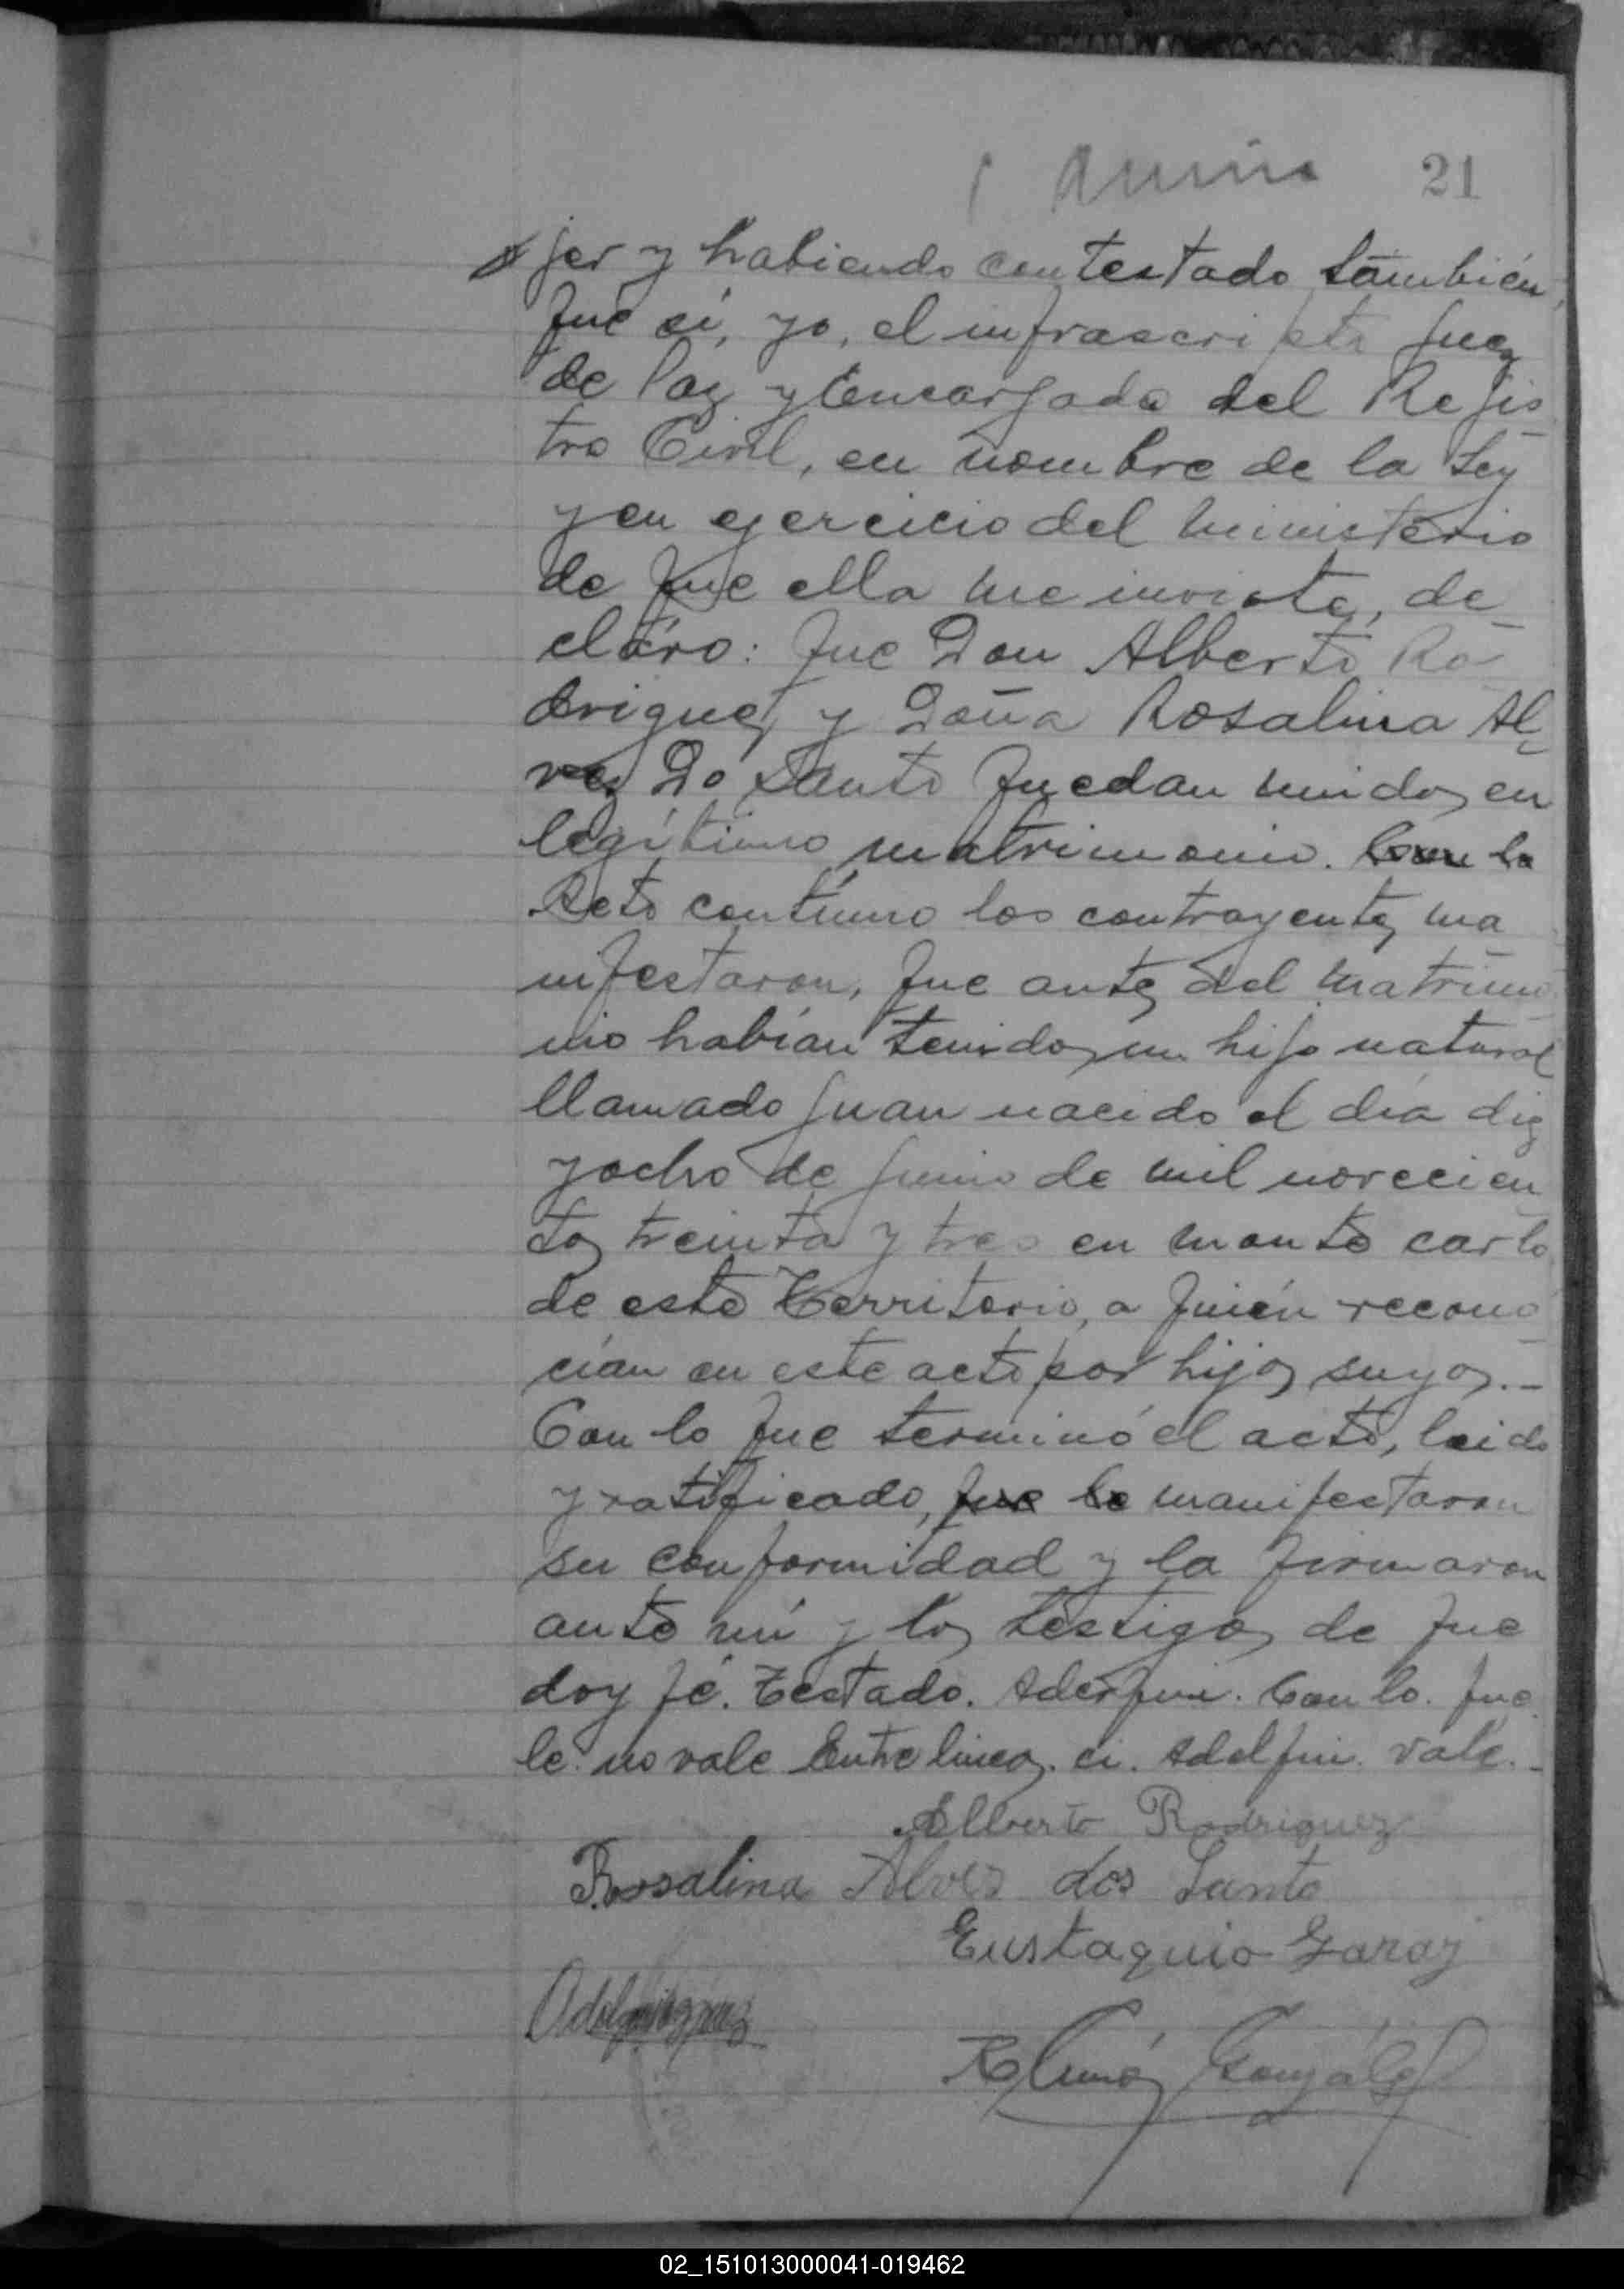 21
jer y habiendo contestado también
que si, yo, el infrascripto Juez
de Paz y Encargado del Regis
tro Civil, en nombre de la Ley
y en ejercicio del ministerio
de que ella me inviste, de_
claro: que Don Alberto Ro_
driguez y Doña Rosalina Al_
vez Do Santo quedan unidos en
legítimo matrimonio. Con lo
Acto continuo los contrayentes ma
nifestaron, que antes del matrimo
nio habían tenido, un hijo natural
llamado Juan nacido el día diez
y ocho de Junio de mil novecien
tos treinta y tres en monte carlo
de este Territorio, a quién recono
cían en este acto por hijos suyos._
Con lo que terminó el acto, leido
y ratificado, que le manifestaron
su conformidad y la firmaron
ante mí y los testigos de que
doy fé. Testado. Aderfin. Con lo. que.
le. no vale Entre lineas. ci. Adelfin. vale._
Alberto Rodriguez
Rosalina Alves dos Santo
Eustaquio Garay
González
02_151013000041-019462